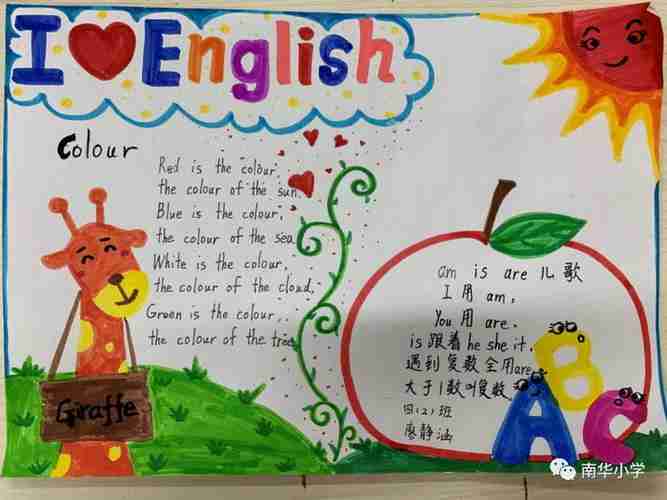 I ❤ English
Colour
Red is the colour,
the colour of the sun.
Blue is the colour,
the colour of the sea.
White is the colour,
the colour of the cloud,
Green is the colour,
the colour of the tree
Giraffe
am is are 儿歌
I 用 am,
You 用 are.
is 跟着 he she it.
遇到复数全用are
大于1数叫复数.
四(2)班
廖静涵
A B C
南华小学